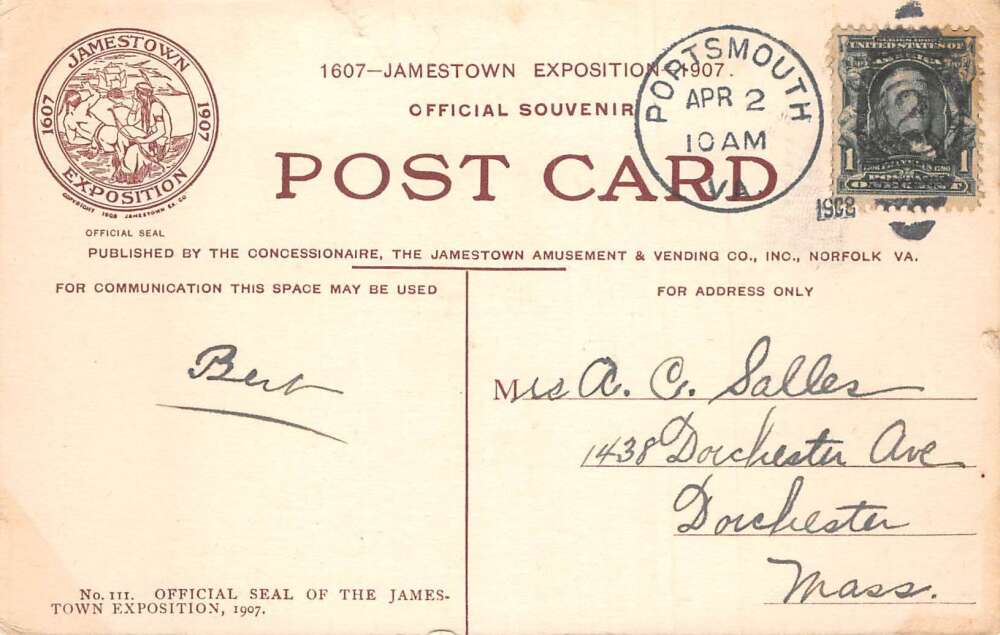 JAMESTOWN
1607 1907
EXPOSITION
COPYRIGHT 1906 JAMESTOWN EX. CO
OFFICIAL SEAL
1607—JAMESTOWN EXPOSITION—1907.
OFFICIAL SOUVENIR
POST CARD
PORTSMOUTH
APR 2
10 AM
VA.
1908
SERIES 1902
UNITED STATES OF
AMERICA
1 1
PUBLISHED BY THE CONCESSIONAIRE, THE JAMESTOWN AMUSEMENT & VENDING CO., INC., NORFOLK VA.
FOR COMMUNICATION THIS SPACE MAY BE USED
FOR ADDRESS ONLY
Bert
Mrs A. C. Salles
1438 Dorchester Ave
Dorchester
Mass.
No. 111. OFFICIAL SEAL OF THE JAMES-
TOWN EXPOSITION, 1907.